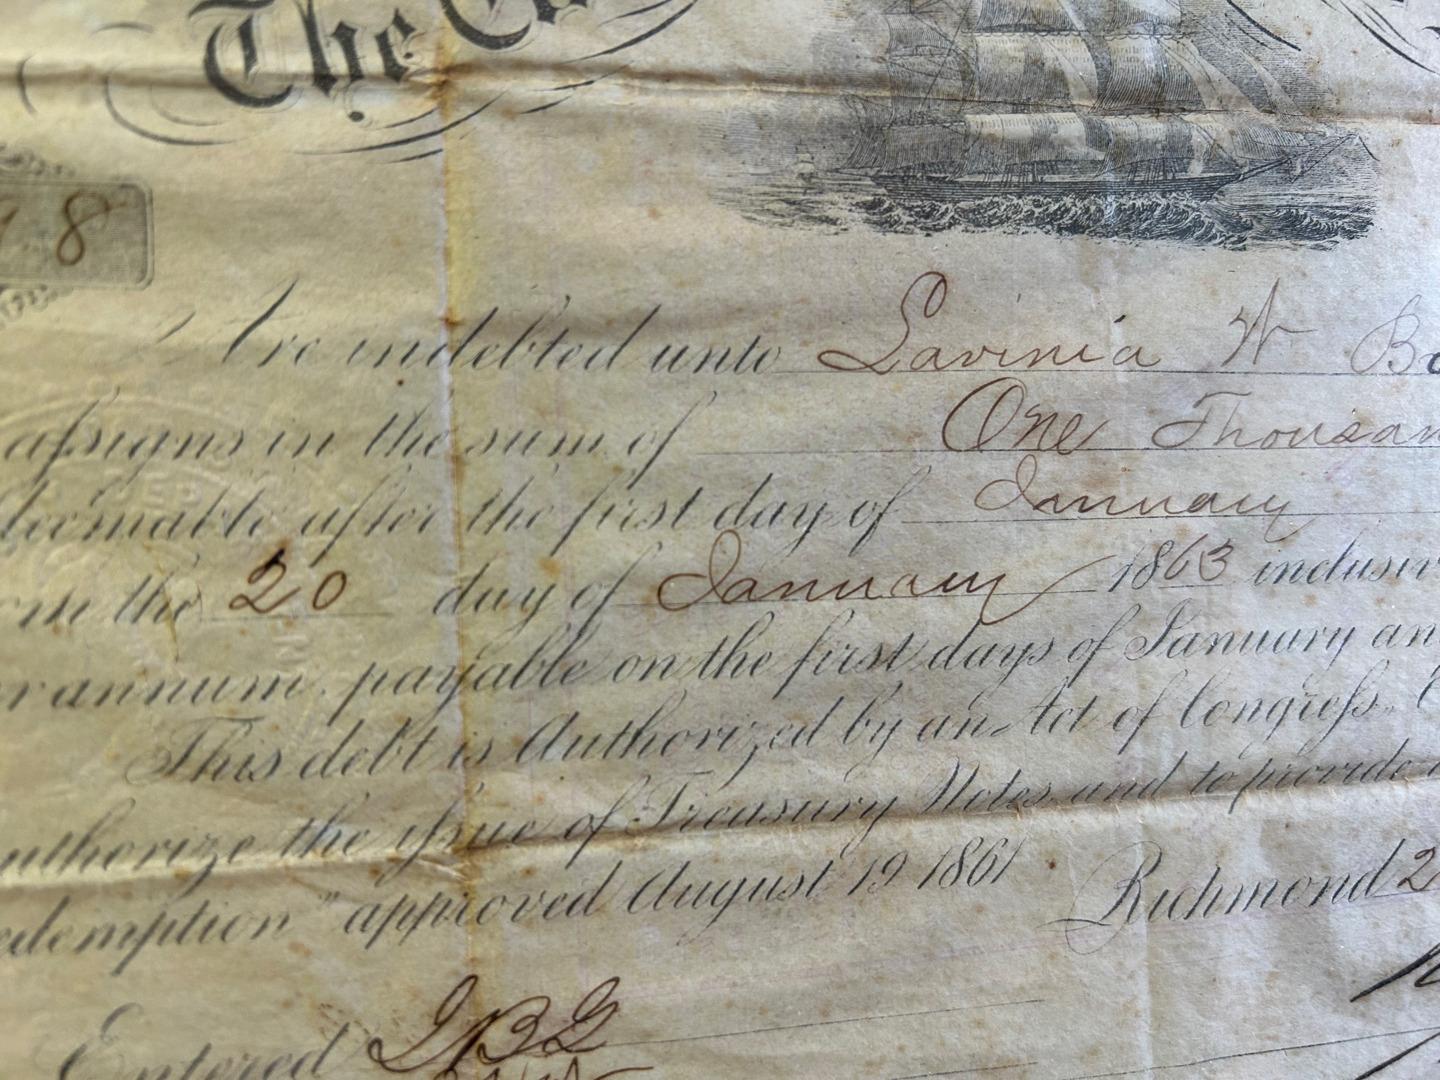 The
8
Are indebted unto Lavinia W Bo
assigns in the sum of One Thousan
deemable after the first day of January
om the 20 day of January 1863 inclusiv
r annum, payable on the first days of January an
This debt is Authorized by an Act of Congress.
uthorize the issue of Treasury Notes, and to provide
edemption" approved August 19 1861 Richmond 2
Entered JBG